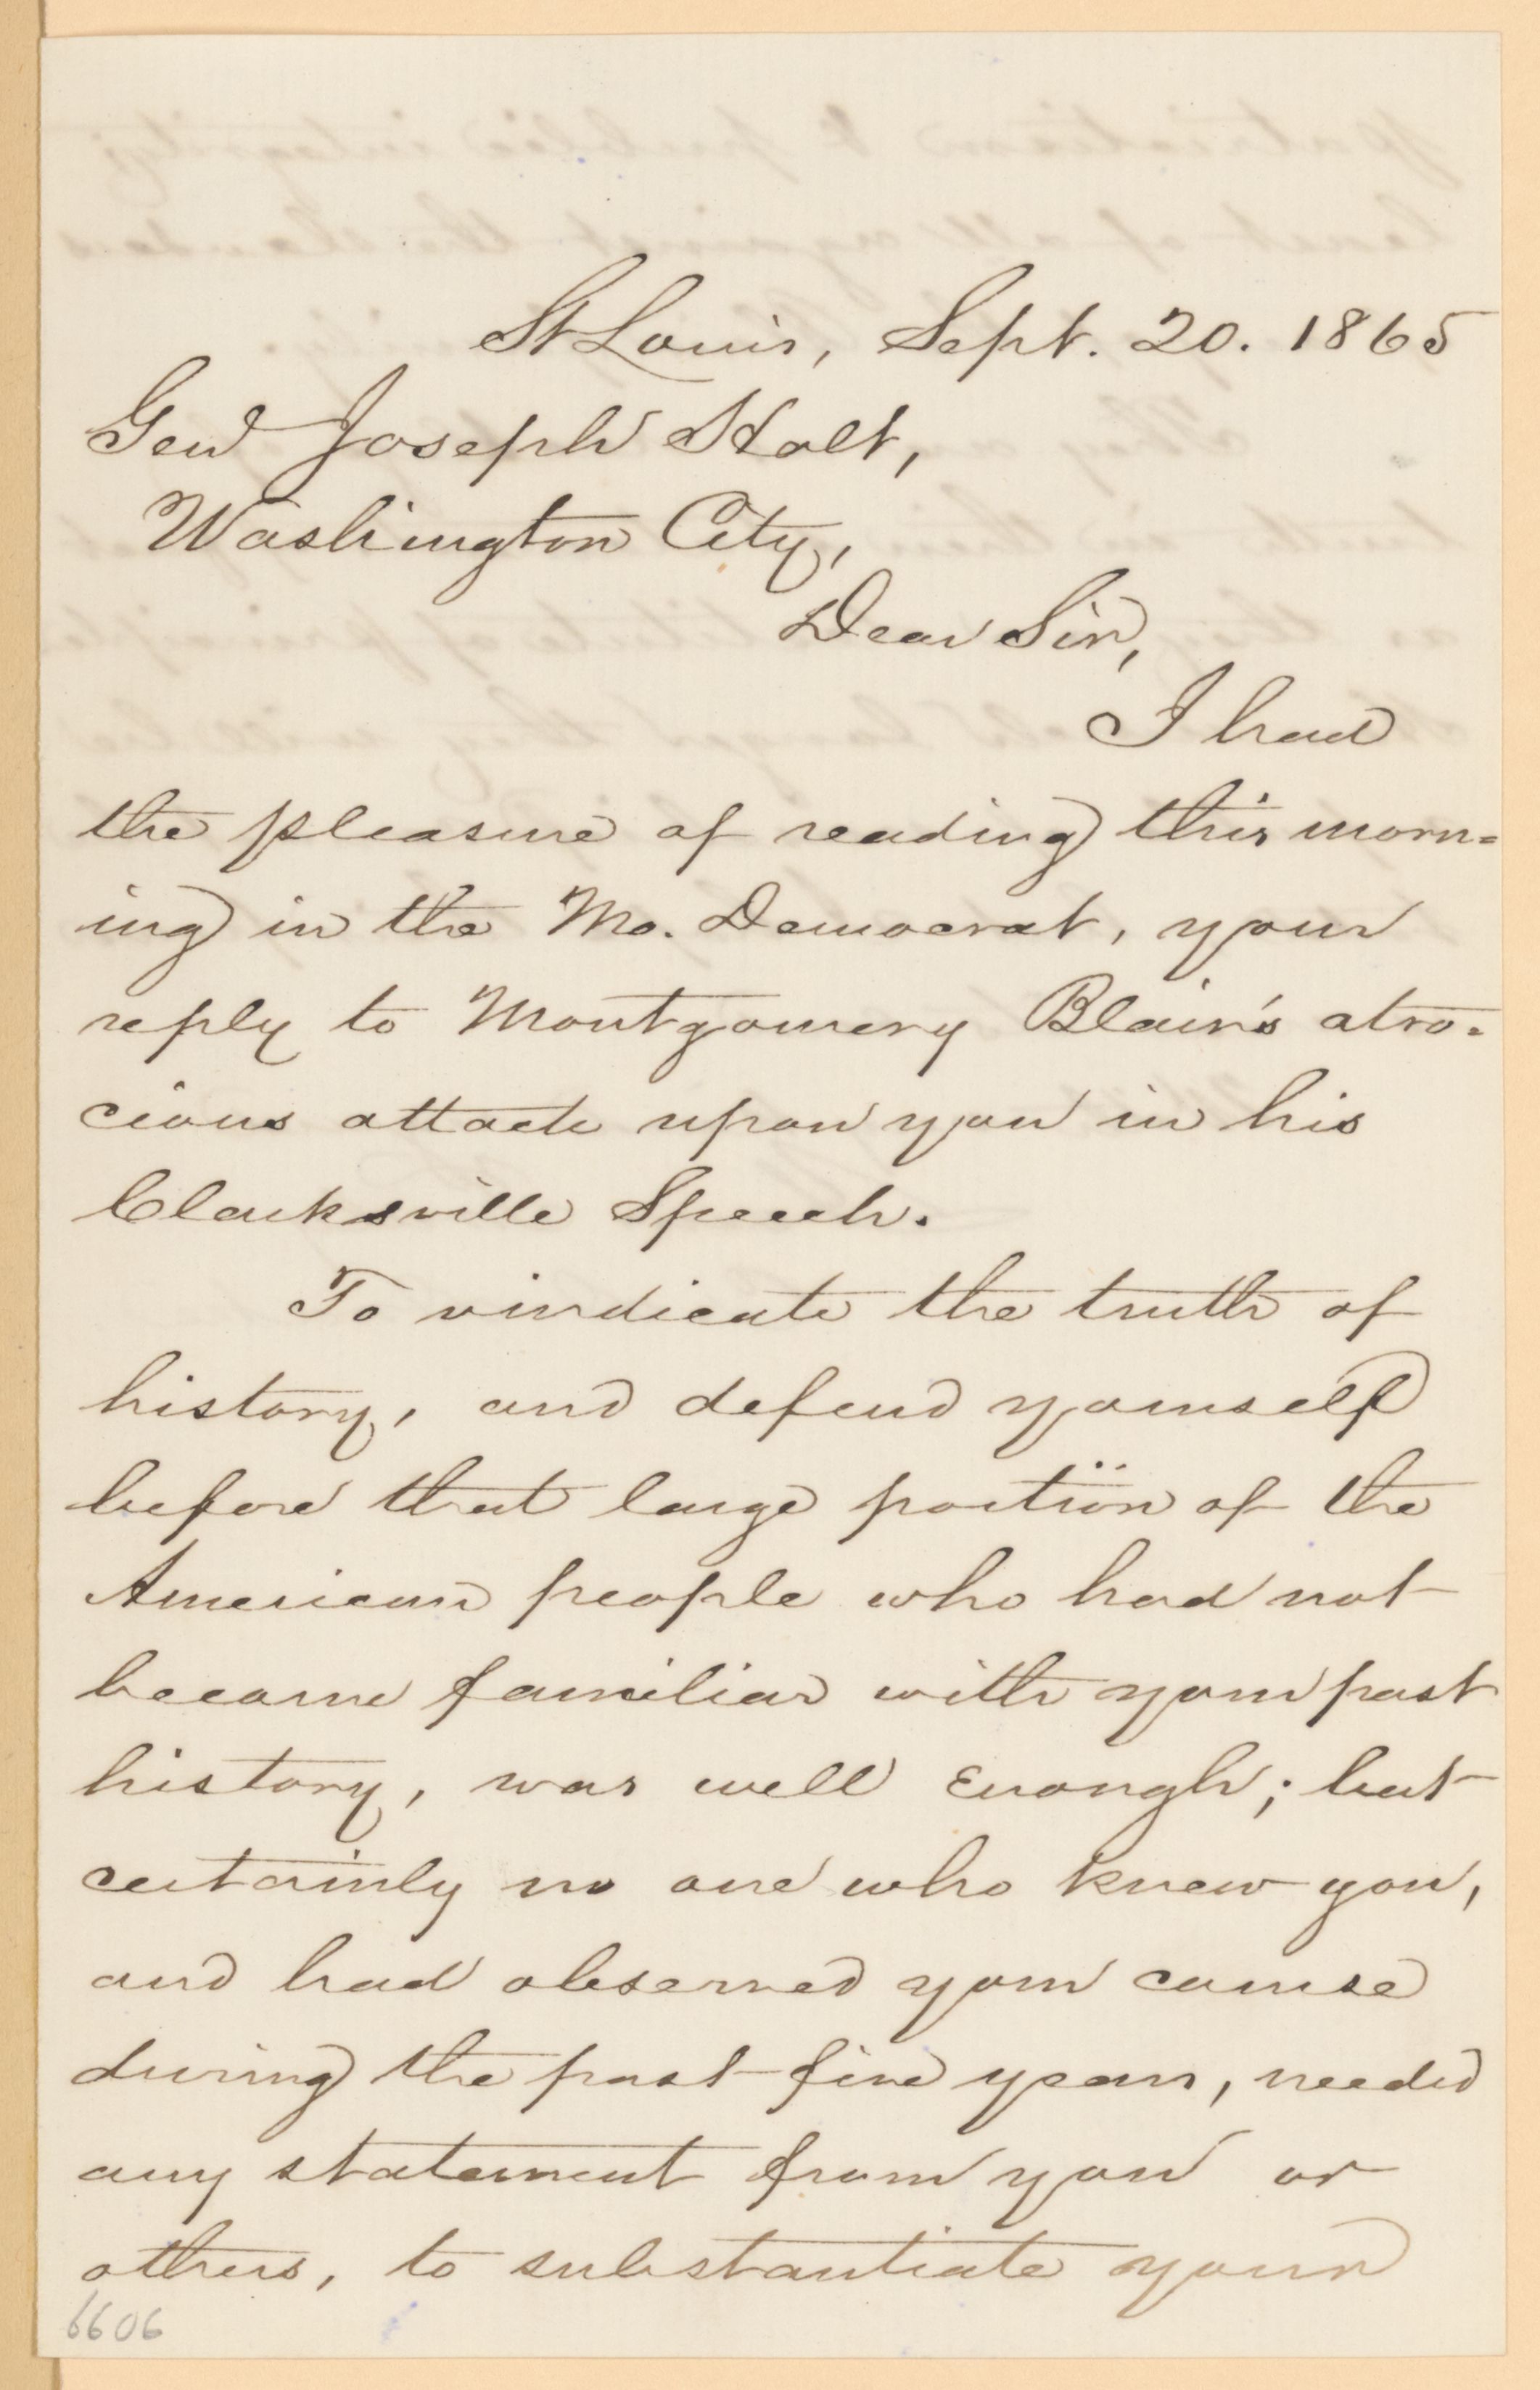 St Louis, Sept. 20. 1865
Genl Joseph Holt,
Washington City,
Dear Sir,
I had
the pleasure of reading this morn=
ing in the Mo. Democrat, your
reply to Montgomery Blair's atro=
cious attack upon you in his
Clarksville Speech.
To vindicate the truth of
history, and defend yourself
before that large portion of the
American people who had not
become familiar with your past
history, was well enough; but
certainly no one who knew you,
and had observed your course
during the past five years, needed
any statement from you or
others, to substantiate your
6606